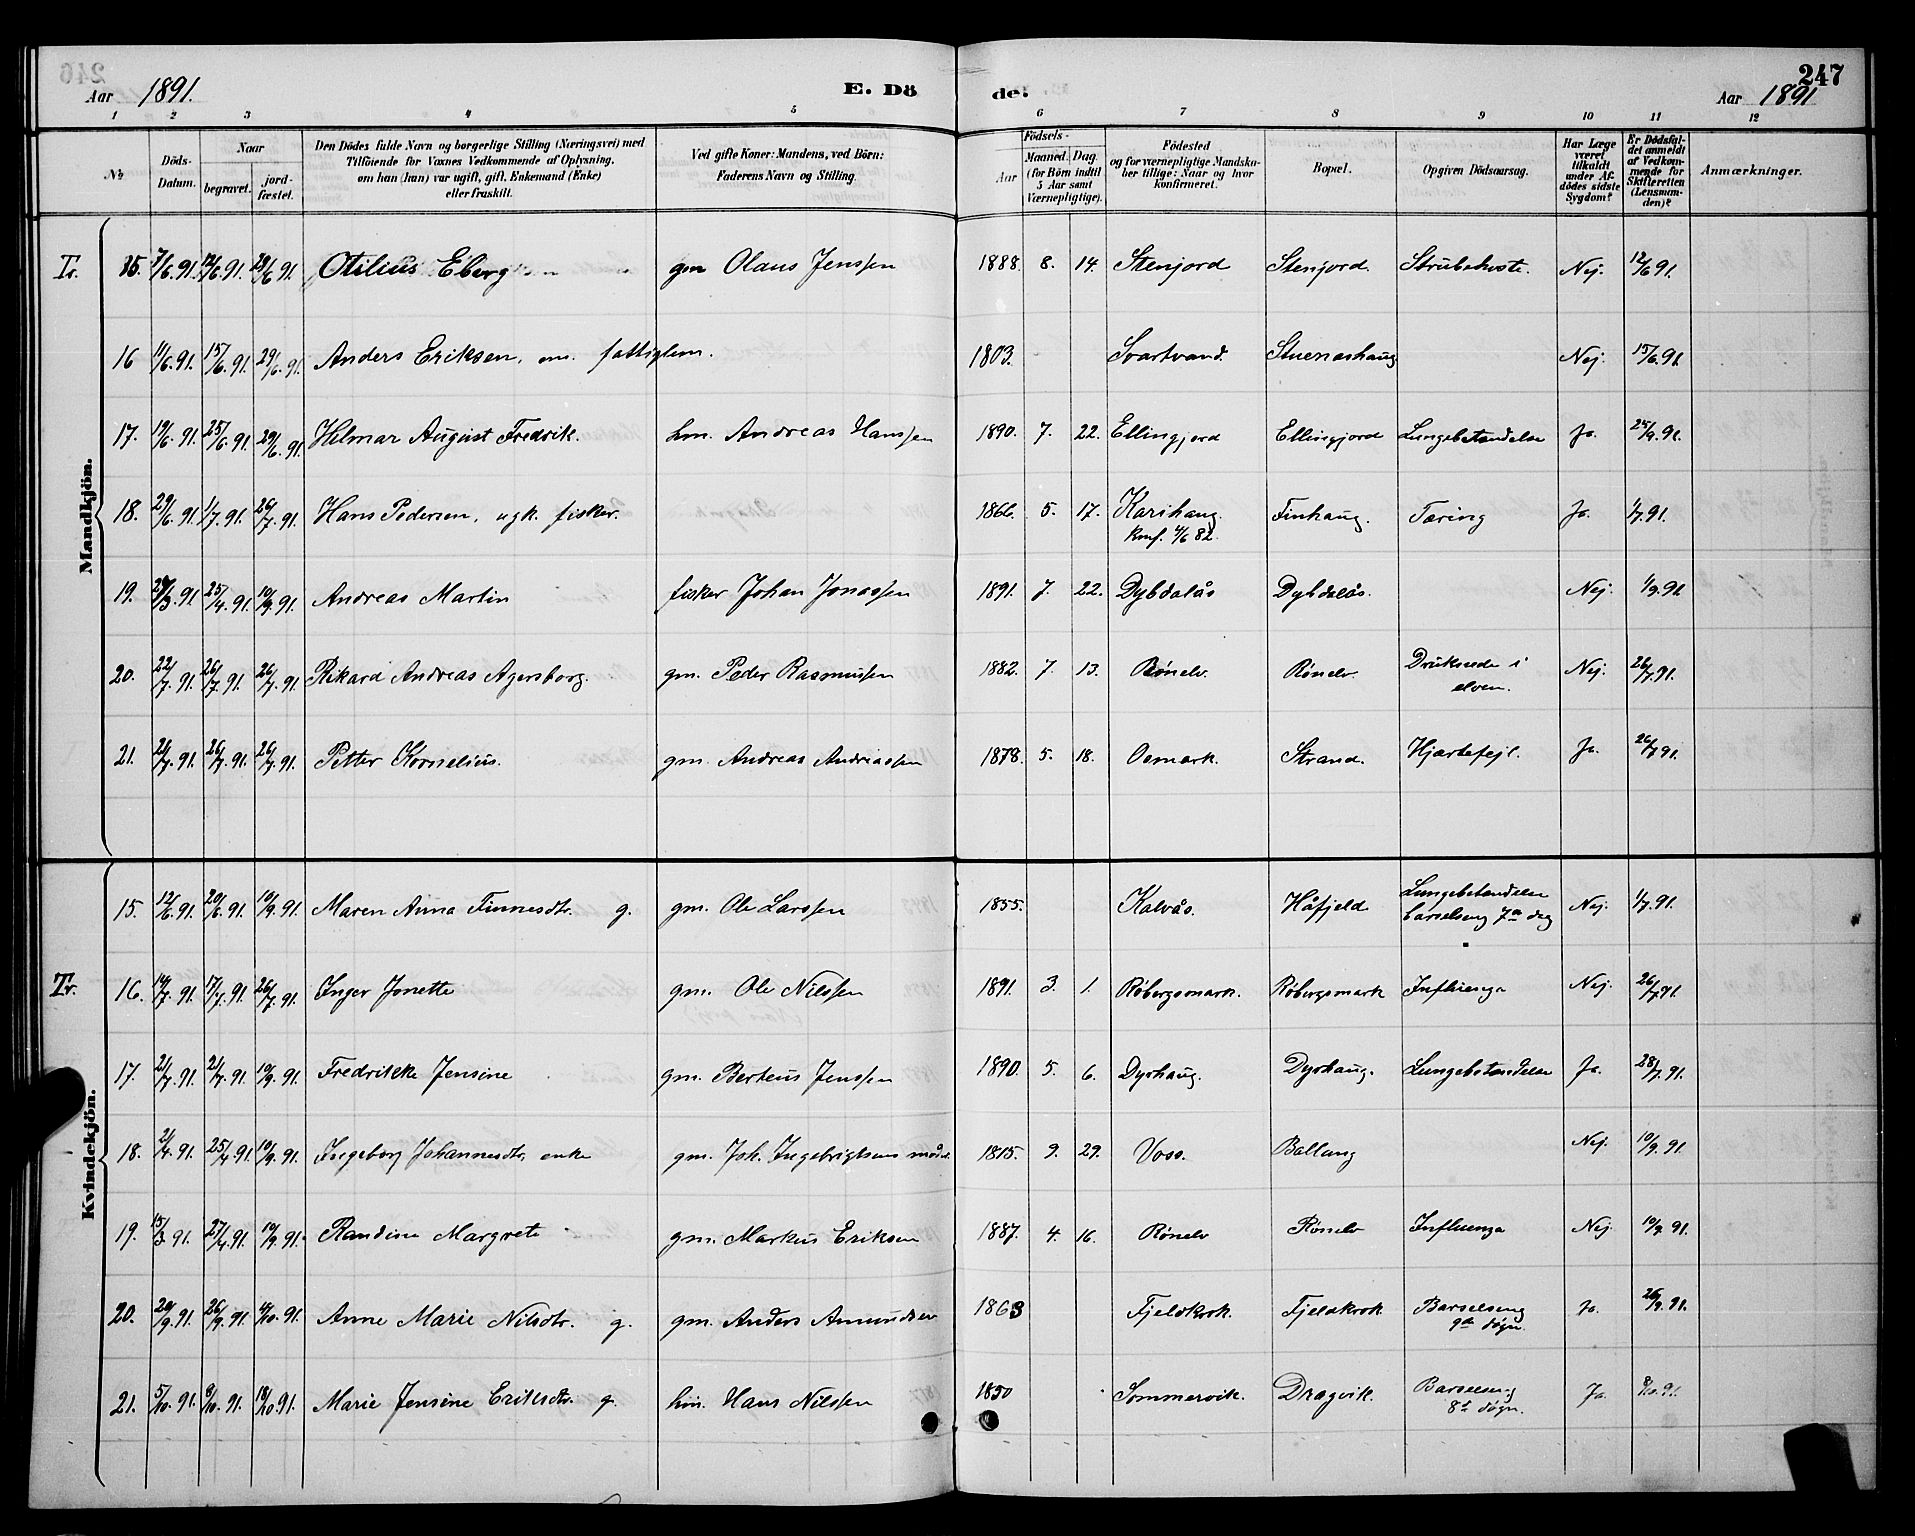 246
Aar 1891.
E. Dö
de.
247
Aar 1891
1 2 3 4 5 6 7 8 9 10 11 12
No
Döds-Datum.
Naar
begravet.
jord-fæstet.
Den Dödes fulde Navn og borgerlige Stilling (Næringsvei) med
Tilföiende for Voxnes Vedkommende af Oplysning,
om han (hun) var ugift, gift, Enkemand (Enke)
eller fraskilt.
Ved gifte Koner: Mandens, ved Börn:
Faderens Navn og Stilling.
Födsels-
Aar
Maaned. Dag.
(for Börn indtil
5 Aar samt
Værnepligtige).
Födested
og for værnepligtige Mandska-
ber tillige: Naar og hvor
konfirmeret.
Bopæl.
Opgiven Dödsaarsag.
Har Læge
været
tilkaldt
under Af-
dödes sidste
Sygdom?
Er Dödsfal-
det anmeldt
af Vedkom-
mende for
Skifteretten
(Lensman-
den)?
Anmærkninger.
Mandkjön.
Tr. 15. 7/6.91. 12/6.91. 29/6.91. Otilius Eberg gm Olaus Jenssen 1888. 8. 14. Stenjord Stenjord. Strubehoste. Nej. 12/6 91.
16 11/6.91. 15/6.91. 29/6.91. Anders Eriksen, em. fattiglem. 1803. Svartvand. Stuenashaug Nej. 15/6.91.
17. 19/6.91. 25/6.91. 29/6.91. Hilmar August Fredrik. hm. Andreas Hanssen 1890. 7. 22. Ellingjord Ellingjord Lungebetændelse Ja. 25/9.91.
18. 29/6.91. 1/7.91. 26/7.91. Hans Pedersen, ugk. fisker. 1866. 5. 17. Karihaug. Finhaug. Tæring Ja. 1/7.91.
konf. 4/6 82.
19. 91. 25/4.91. 10/9.91. Andreas Martin fisker Johan Jonassen 1891. 7. 22. Dybdalås Dybdalås. Nej. 1/9.91.
20. 22/7.91. 26/7.91. 26/7.91. Rikard Andreas Agersborg. gm. Peder Rasmussen 1882. 7. 13. Rönelv. Rönelv. Druknede i Nej. 26/7.91.
elven.
21. 21/7.91. 26/7.91. 26/7.91. Petter Kornelius. gm. Andreas Andreassen 1878. 5. 18. Oemark. Strand. Hjærtefejl. Ja. 26/7.91.
Kvindekjön.
15. 12/6.91. 20/6.91. 10/9.91. Maren Anna Finnesdtr. g. gm. Ole Larssen 1855. Kalvås. Håfjeld Lungebetændelse Nej. 1/7.91.
barselseng 7de dag
Tr. 16. 14/7.91. 17/7.91. 26/7.91. Inger Jonette gm. Ole Nilssen 1891. 3. 1. Röbergsmark. Röbergsmark Influenza Nej. 26/7.91.
17. 21/7.91. 21/7.91. 10/9.91. Fredrikke Jensine gm. Berteus Jenssen 1890. 5. 6. Dyrhaug. Dyrhaug. Lungebetændelse Ja. 28/7.91.
18. 21/4.91. 25/4.91. 10/9.91. Ingeborg Johannesdtr, enke gm. Joh. Ingebrigtsens moder 1815. 9. 29. Voss. Ballang Nej. 10/9.91.
19. 15/3.91. 27/4.91. 10/9.91. Randine Margrete gm. Markus Eriksen 1887. 4. 16. Rönelv Rönelv Influenza Nej. 10/9.91.
20. 20/9.91. 26/9.91. 4/10.91. Anne Marie Nilsdtr. g. gm. Anders Amundsen 1863 Fjeldkrok. Fjeldkrok Barselseng Ja. 26/9.91.
9de døgn.
21. 5/10.91. 9/10.91. 18/10.91. Marie Jensine Eriksdtr. g. hm. Hans Nilssen 1850 Sommervik. Dragvik. Barselseng Ja. 8/10.91.
8de døgn.